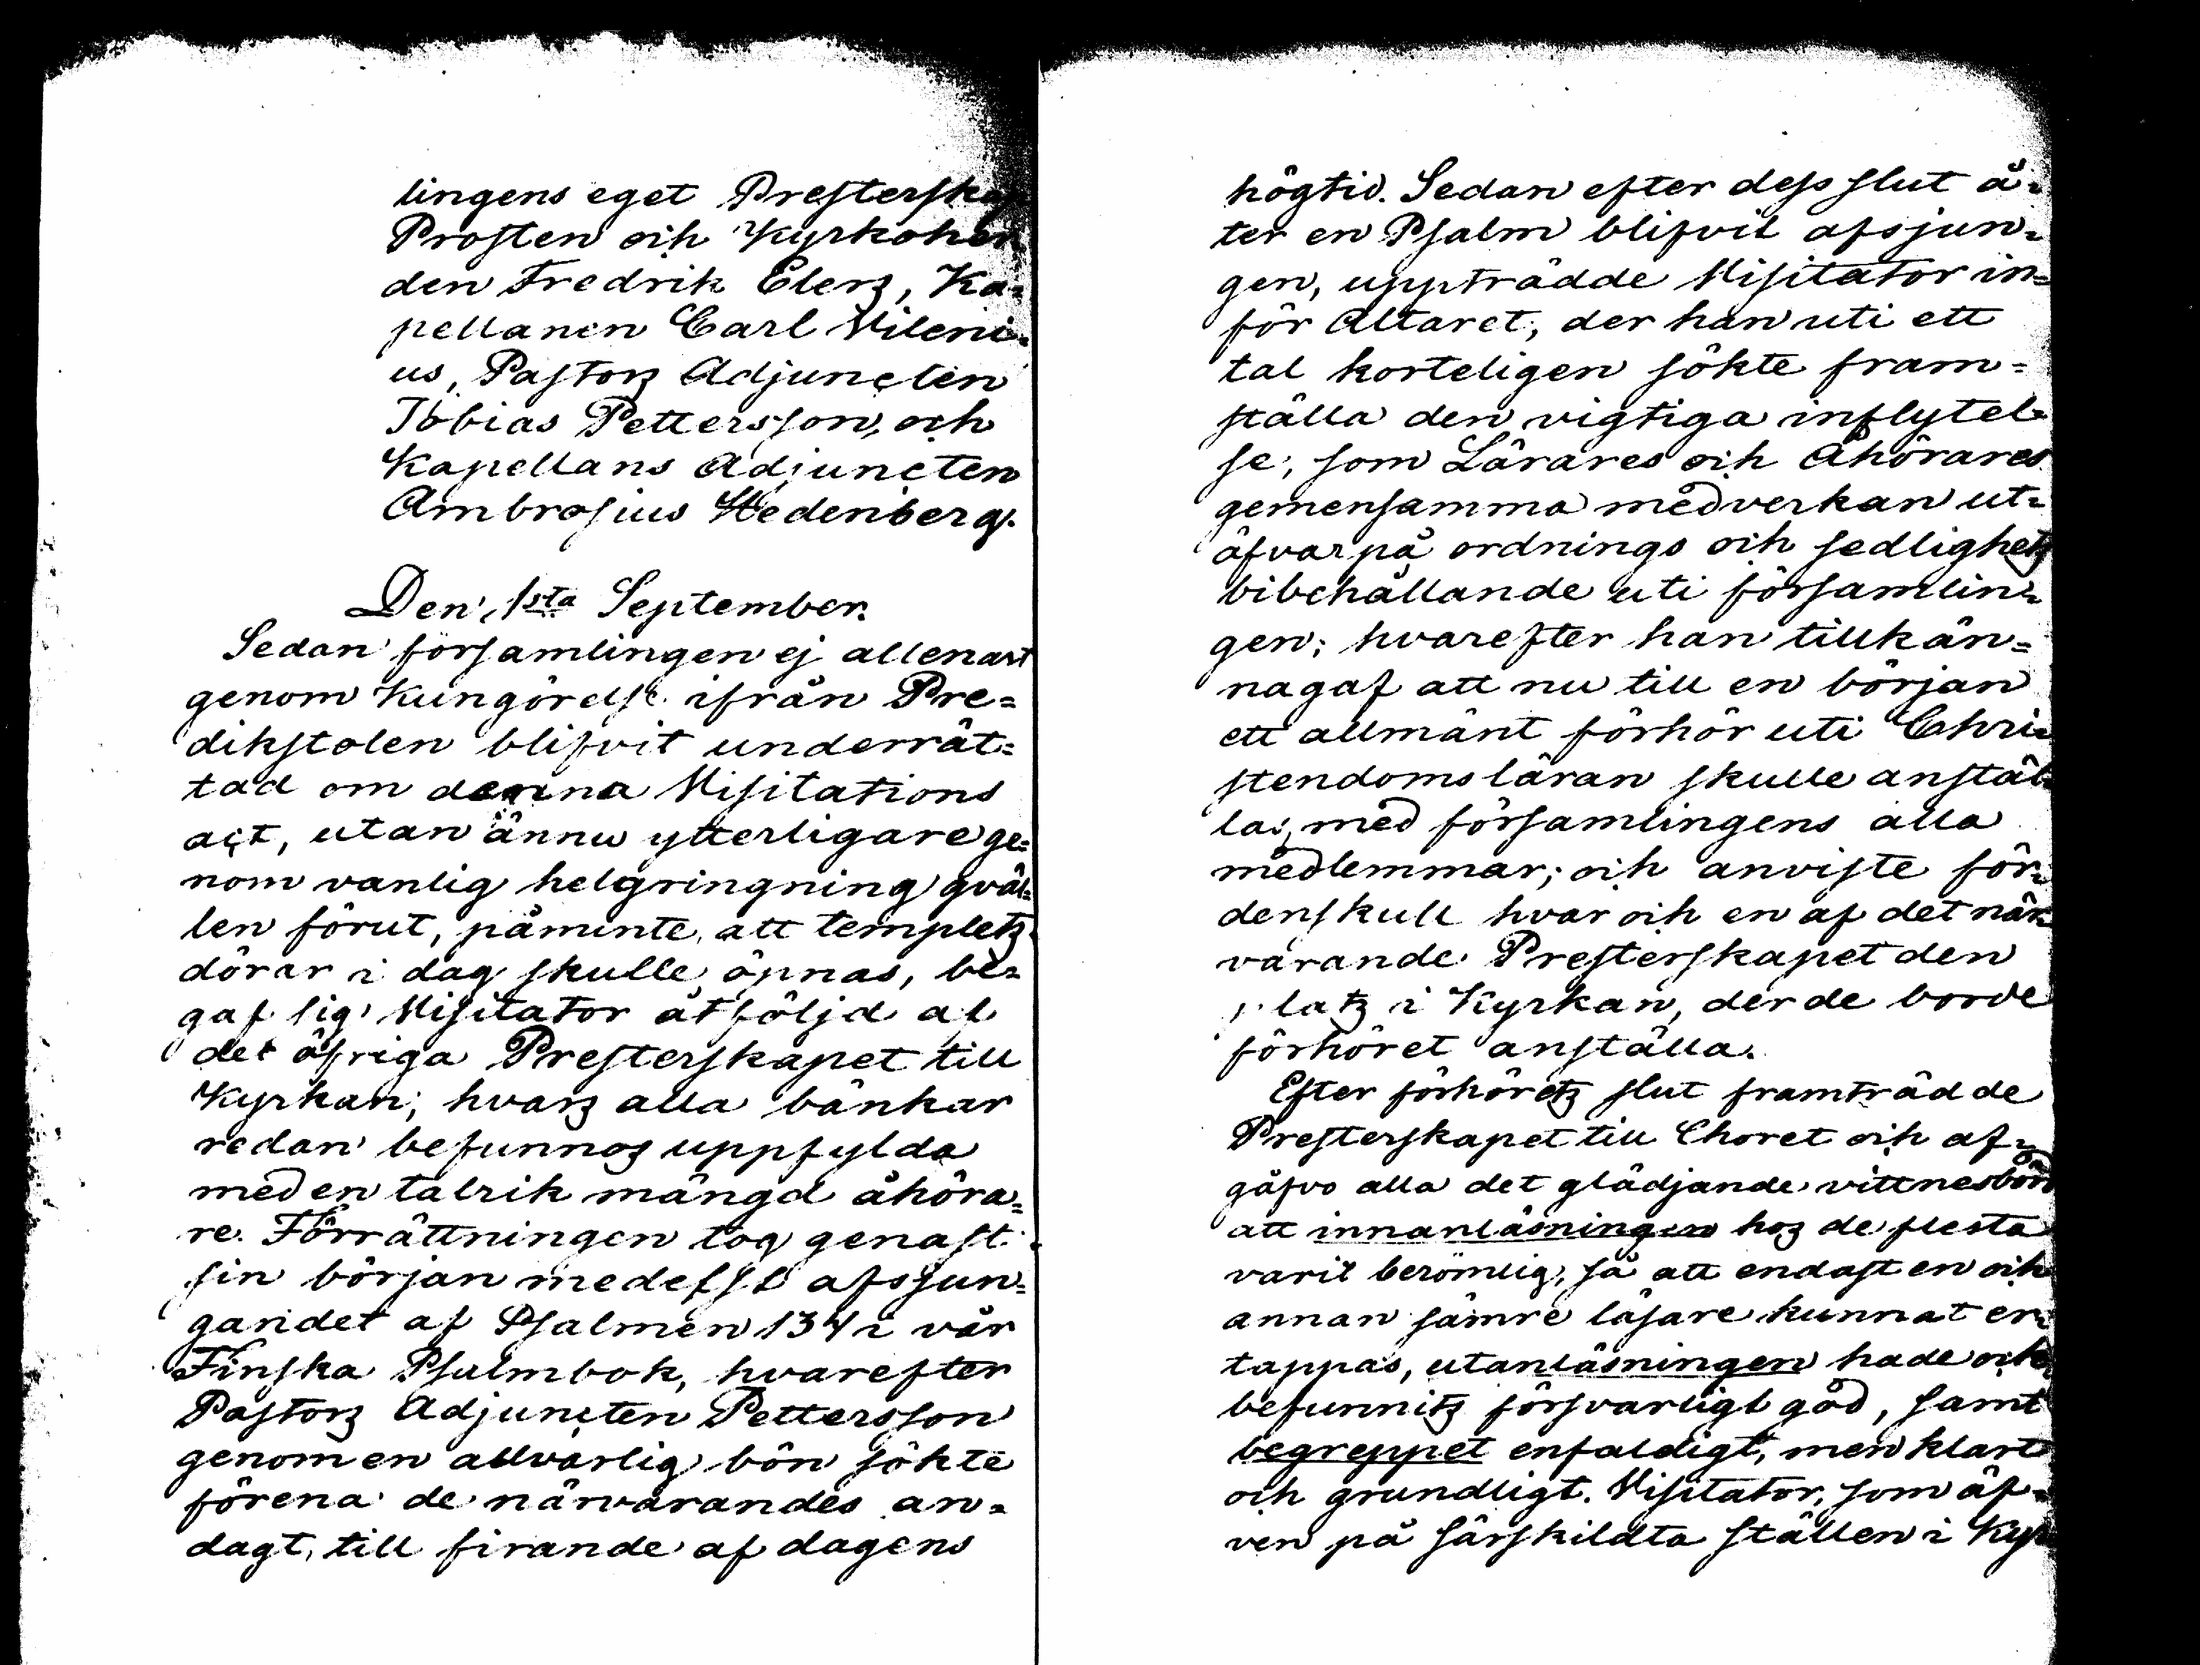 lingens eget Presterskap
Prosten och Kyrkoher
den Fredrik Elerz, Ka=
pellanen Carl Vileni=
us, Pastorz Adjuncten
Tobias Pettersson, och
Kapellans Adjuncten
Ambrosius Hedenberg.
Den 1sta September.
Sedan församlingen ej allenast
genom Kungörelse ifrån Pre=
dikstolen blifvit underrät=
tad om denna Visitations
act, utan ännu ytterligare ge=
nom vanlig helgringning qväl=
len förut, påminte, att templetz
dörar i dag skulle öpnas, be=
gaf sig Visitator åtföljd af
det öfriga Presterskapet till
Kyrkan; hvarz alla bänkar
redan befunnos uppfylda
med en talrik mängd åhöra=
re. Förrättningen tog genast
sin början medelst afsjun=
gandet af Psalmen 134 i vår
Finska Psalmbok, hvarefter
Pastorz Adjuncten Pettersson
genom en allvarlig bön sökte
förena de närvarandes an=
dagt, till firande af dagens
högtid. Sedan efter dess slut å=
ter en Psalm blifvit afsjun=
gen, uppträdde Visitator in=
för Altaret, der han uti ett
tal korteligen sökte fram=
ställa den vigtiga inflytel=
se, som Lärares och Åhörares
gemensamma medverkan ut=
öfvar på ordnings och sedlighetz
bibehållande uti församlin=
gen; hvarefter han tillkän=
nagaf att nu till en början
ett allmänt förhör uti Chri=
stendomsläran skulle anstäl=
las, med församlingens alla
medlemmar; och anviste för=
denskull hvar och en af det när=
varande Presterskapet den
platz i Kyrkan, der de borde
förhöret anställa.
Efter förhöretz slut framträdde
Presterskapet till Choret och af=
gåfvo alla det glädjande vittnesbörd
att innanläsningen hoz de flesta
varit berömlig, så att endast en och
annan sämre läsare kunnat er=
tappas, utanläsningen hade och
befunnitz försvarligt god, samt
begreppet enfaldigt, men klart
och grundligt. Visitator, som äf=
ven på särskildta ställen i Kyr